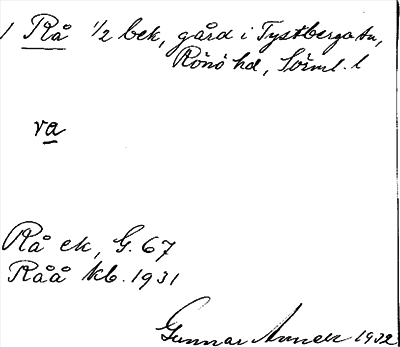 1 Rå 1/2 bek, gård i Tystberga sn,
Rönö hd, Sörml. l
va
Rå ek, G. 67
Råå kb. 1931
Gunnar 1932